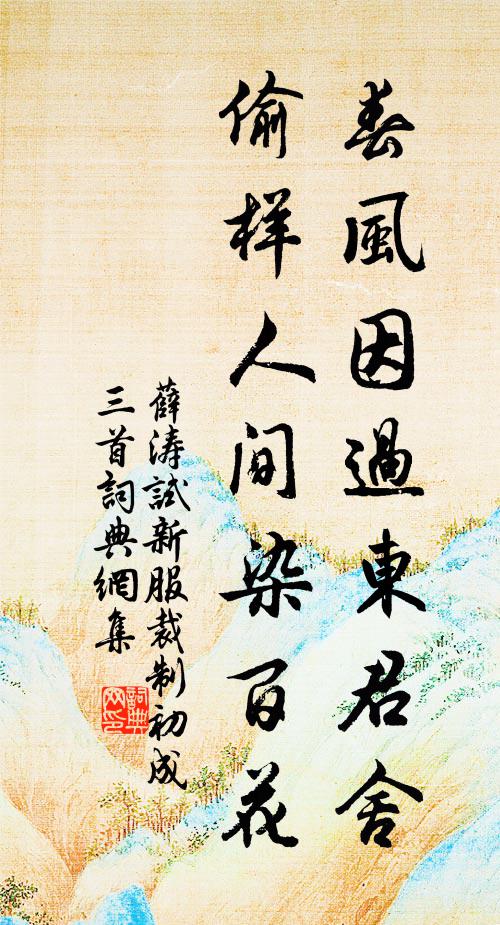 春風因過東君舍
偷样人间染百花
薛涛試新服裁制初成
三首詞典網集
詞典
网印